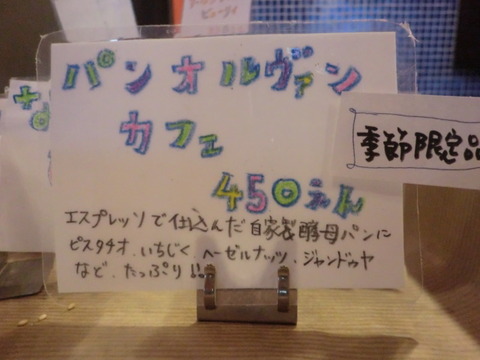 パンオルヴァン
カフェ
季節限定品
450えん
エスプレッソで仕込んだ自家製酵母パンに
ピスタチオ、いちじく、ヘーゼルナッツ、ジャンドゥヤ
など、たっぷり!!